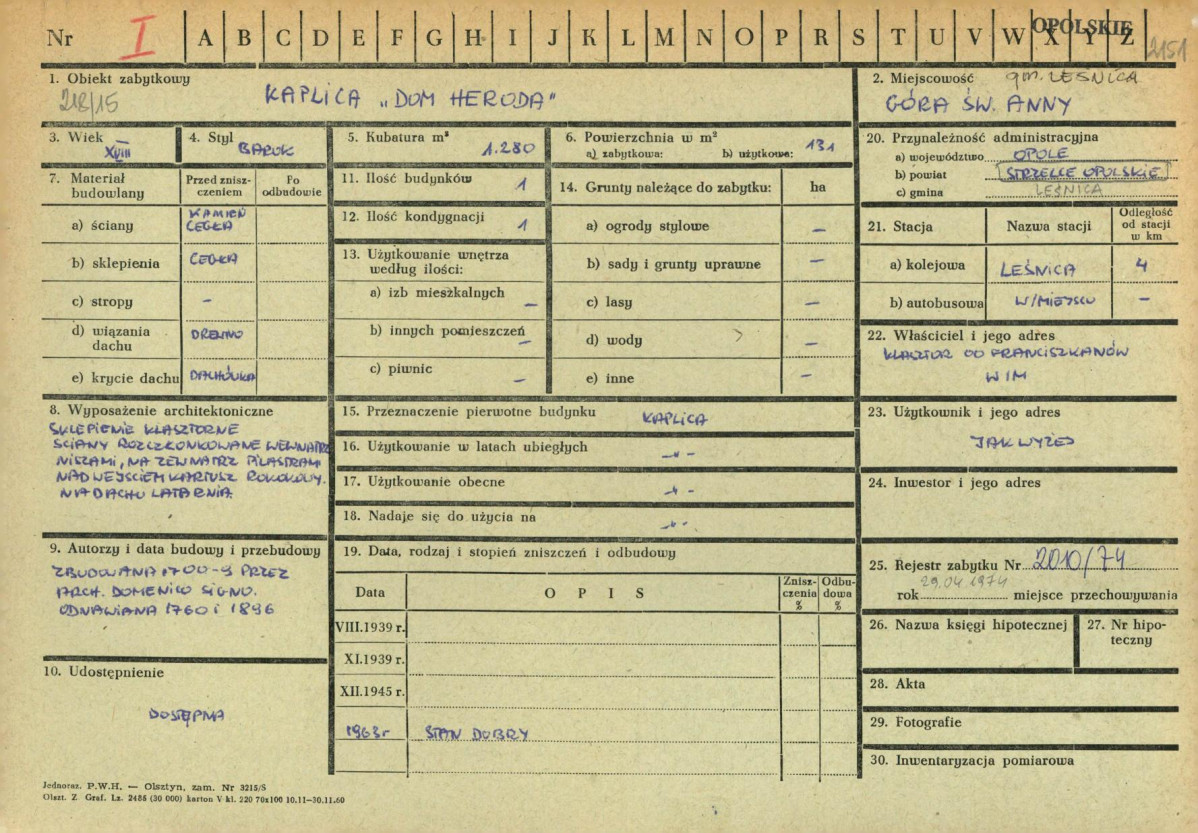 Nr I A B C D E F G H I J K L M N O P R S T U V W X Y Z OPOLSKIE 2151
1. Obiekt zabytkowy
218/15 KAPLICA „DOM HERODA"
2. Miejscowość gm. LEŚNICA
GÓRA ŚW. ANNY
3. Wiek
XVIII
4. Styl
BAROK
5. Kubatura m³
1.280
6. Powierzchnia w m²
a) zabytkowa: b) użytkowa: 131
7. Materiał budowlany
Przed zniszczeniem
Po odbudowie
a) ściany KAMIEŃ CEGŁA
b) sklepienia CEGŁA
c) stropy –
d) wiązania dachu DREWNO
e) krycie dachu DACHÓWKA
8. Wyposażenie architektoniczne
SKLEPIENIE KLASZTORNE
ŚCIANY ROZCZŁONKOWANE WEWNĄTRZ
NISZAMI, NA ZEWNĄTRZ PILASTRAMI
NAD WEJŚCIEM KARTUSZ ROKOKOWY.
NA DACHU LATARNIA
9. Autorzy i data budowy i przebudowy
ZBUDOWANA 1700-9 PRZEZ
ARCH. DOMENICO SIGNO.
ODNAWIANA 1760 i 1896
10. Udostępnienie
DOSTĘPNA
11. Ilość budynków 1
12. Ilość kondygnacji 1
13. Użytkowanie wnętrza
według ilości:
a) izb mieszkalnych –
b) innych pomieszczeń –
c) piwnic –
14. Grunty należące do zabytku: ha
a) ogrody stylowe –
b) sady i grunty uprawne –
c) lasy –
d) wody –
e) inne –
15. Przeznaczenie pierwotne budynku KAPLICA
16. Użytkowanie w latach ubiegłych -"-
17. Użytkowanie obecne -"-
18. Nadaje się do użycia na -"-
19. Data, rodzaj i stopień zniszczeń i odbudowy
Data OPIS Zniszczenia % Odbudowa %
VIII.1939 r.
XI.1939 r.
XII.1945 r.
1963r STAN DOBRY
20. Przynależność administracyjna
a) województwo OPOLE
b) powiat STRZELCE OPOLSKIE
c) gmina LEŚNICA
21. Stacja Nazwa stacji Odległość od stacji w km
a) kolejowa LEŚNICA 4
b) autobusowa W/MIEJSCU –
22. Właściciel i jego adres
KLASZTOR OO FRANCISZKANÓW
W/M
23. Użytkownik i jego adres
JAK WYŻEJ
24. Inwestor i jego adres
25. Rejestr zabytku Nr 2010/74
29.04 1974
rok miejsce przechowywania
26. Nazwa księgi hipotecznej
27. Nr hipoteczny
28. Akta
29. Fotografie
30. Inwentaryzacja pomiarowa
Jednoraz. P.W.H. — Olsztyn, zam. Nr 3215/S
Olszt. Z Graf. Lz. 2485 (30 000) karton V kl. 220 70x100 10.11–30.11.60